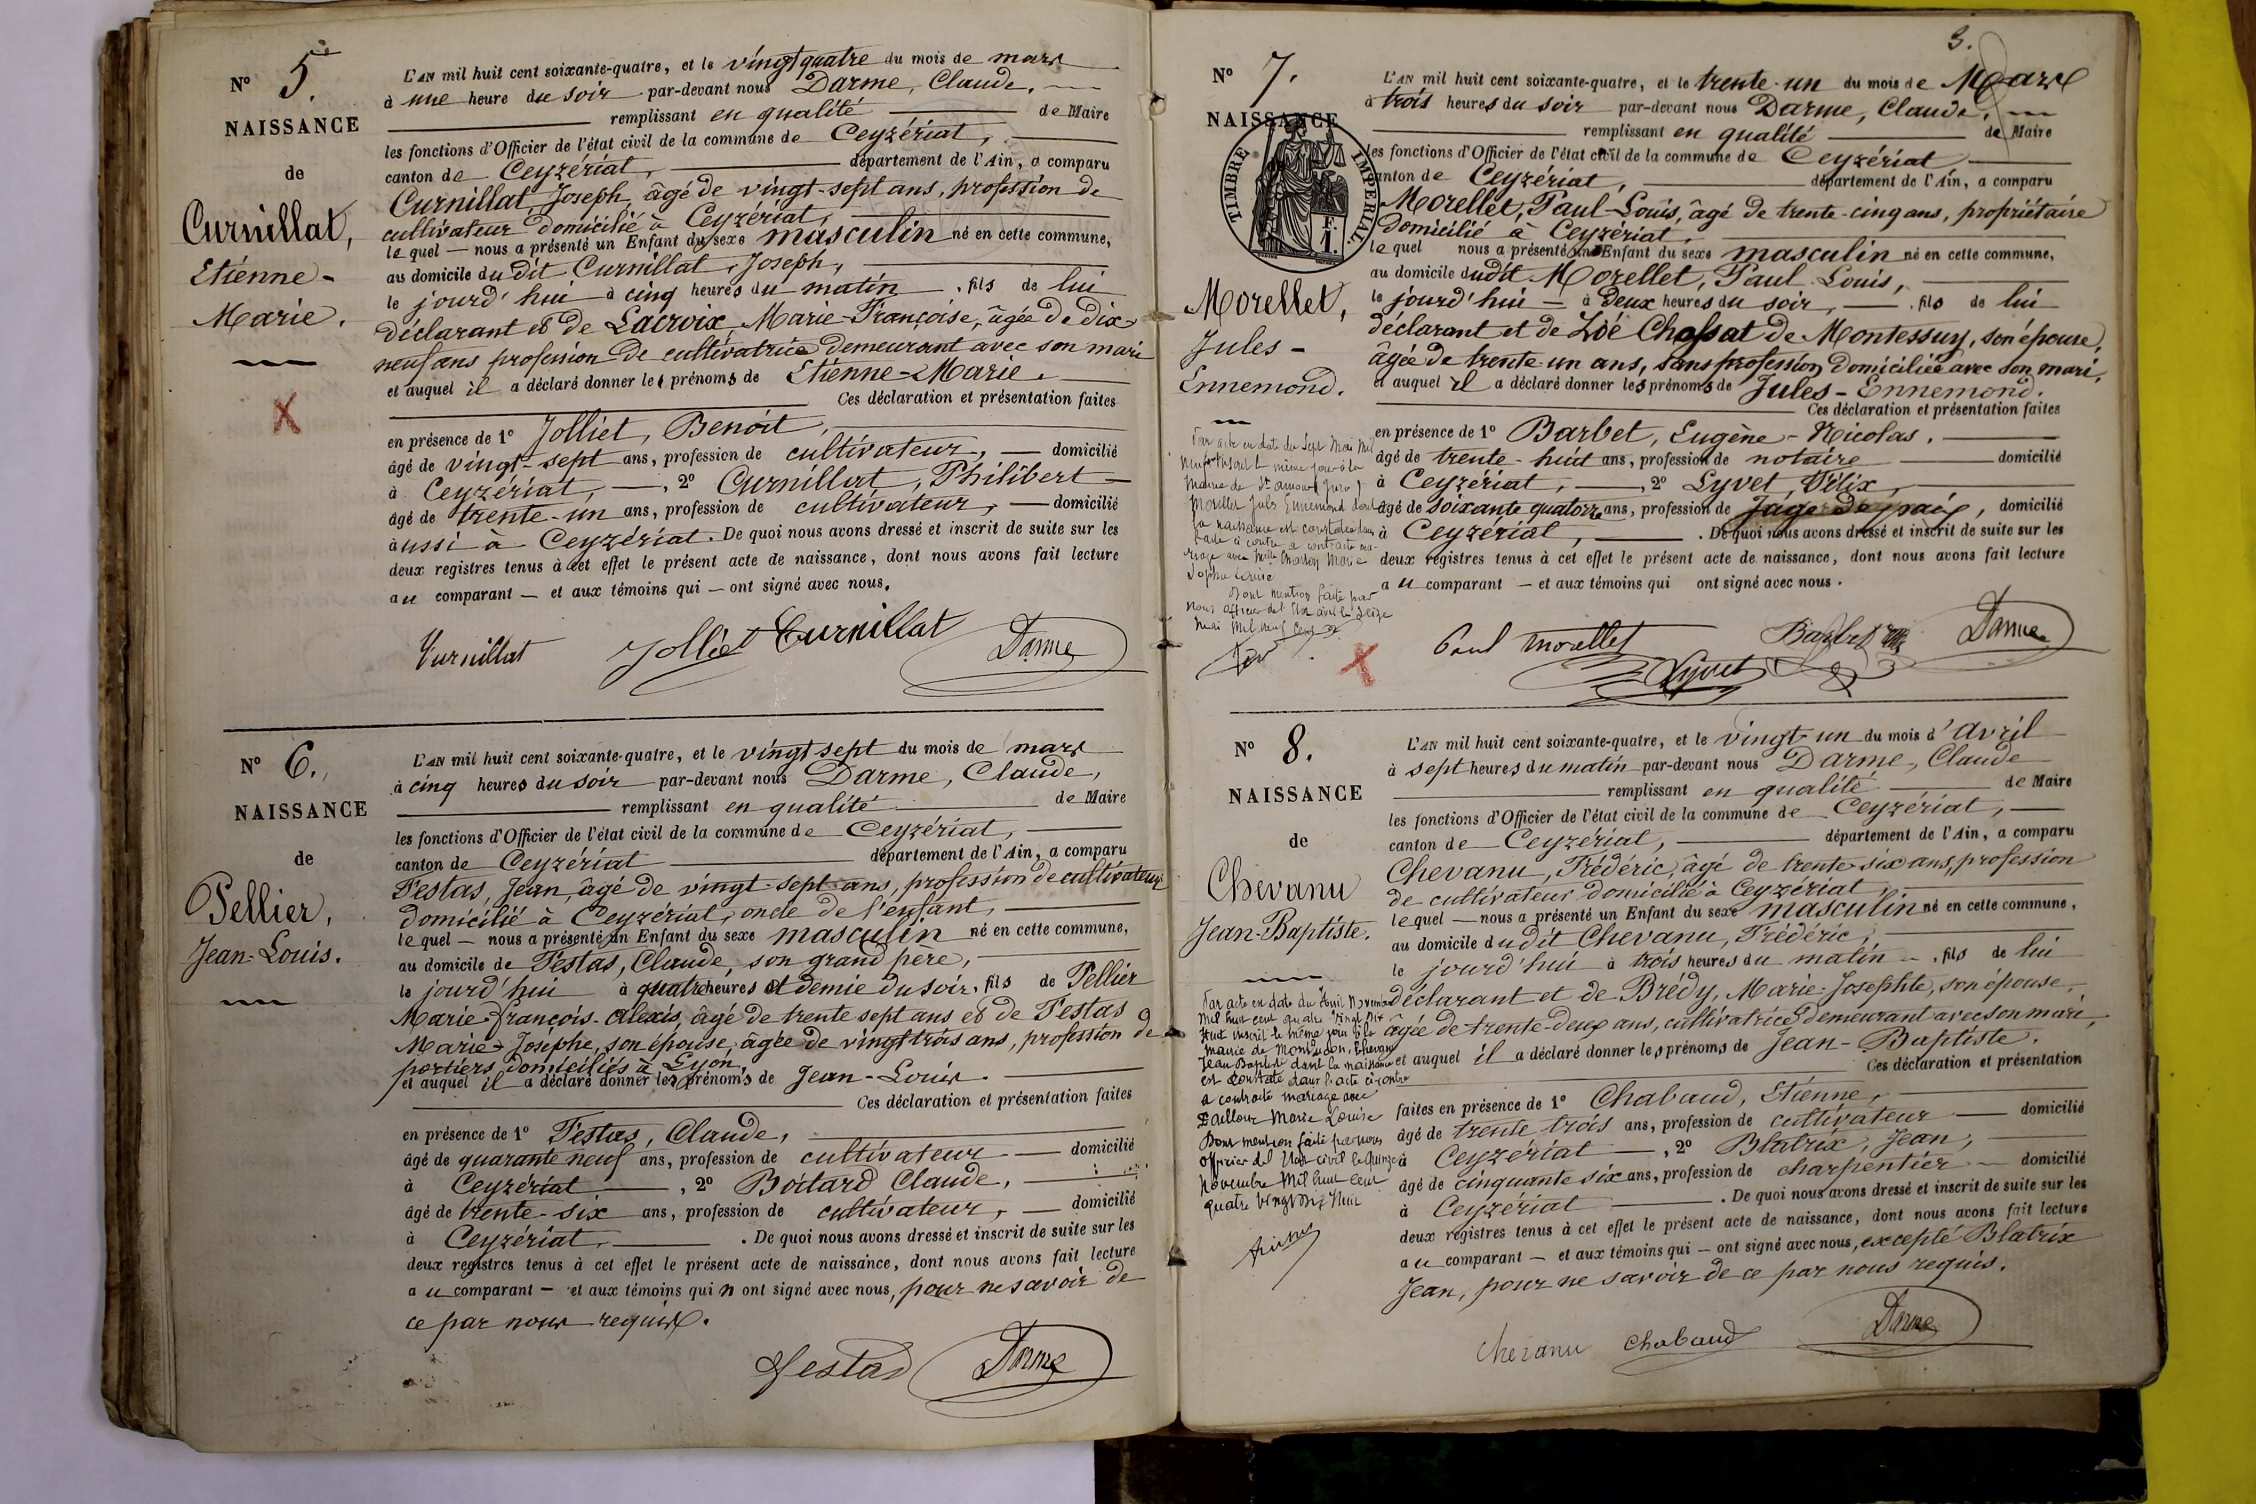 N° 5.
NAISSANCE
de
Curnillat,
Etienne-
Marie.
L'AN mil huit cent soixante-quatre, et le vingt quatre du mois de mars
à une heure du soir par-devant nous Darme, Claude,
remplissant en qualité de Maire
les fonctions d'Officier de l'état civil de la commune de Ceyzériat,
canton de Ceyzériat, département de l'Ain, a comparu
Curnillat, Joseph, âgé de vingt-sept ans, profession de
cultivateur domicilié à Ceyzériat,
lequel nous a présenté un Enfant du sexe masculin né en cette commune,
au domicile du dit Curnillat, Joseph,
le jourd'hui à cinq heures du matin, fils de lui
déclarant et de Lacroix, Marie-Françoise, âgée de dix-
neuf ans profession de cultivatrice demeurant avec son mari
et auquel il a déclaré donner les prénoms de Etienne-Marie.
Ces déclaration et présentation faites
en présence de 1° Jolliet, Benoit,
âgé de vingt-sept ans, profession de cultivateur, domicilié
à Ceyzériat, , 2° Curnillat, Philibert
âgé de trente-un ans, profession de cultivateur, domicilié
aussi à Ceyzériat. De quoi nous avons dressé et inscrit de suite sur les
deux registres tenus à cet effet le présent acte de naissance, dont nous avons fait lecture
au comparant et aux témoins qui ont signé avec nous.
Curnillat Jolliet Curnillat Darme
N° 6.
NAISSANCE
de
Pellier,
Jean-Louis.
L'AN mil huit cent soixante-quatre, et le vingt sept du mois de mars
à cinq heures du soir par-devant nous Darme, Claude,
remplissant en qualité de Maire
les fonctions d'Officier de l'état civil de la commune de Ceyzériat,
canton de Ceyzériat département de l'Ain, a comparu
Festas, Jean, âgé de vingt-sept ans, profession de cultivateur
domicilié à Ceyzériat, oncle de l'enfant,
lequel nous a présenté un Enfant du sexe masculin né en cette commune,
au domicile de Festas, Claude, son grand père,
le jourd'hui à quatre heures et demie du soir, fils de Pellier
Marie-François-Alexis, âgé de trente sept ans et de Festas
Marie-Josephe, son épouse, âgée de vingt trois ans, profession de
portiers domiciliés à Lyon,
et auquel il a déclaré donner les prénoms de Jean-Louis.
Ces déclaration et présentation faites
en présence de 1° Festas, Claude,
âgé de quarante neuf ans, profession de cultivateur domicilié
à Ceyzériat , 2° Boitard Claude,
âgé de trente-six ans, profession de cultivateur, domicilié
à Ceyzériat, . De quoi nous avons dressé et inscrit de suite sur les
deux registres tenus à cet effet le présent acte de naissance, dont nous avons fait lecture
au comparant et aux témoins qui n ont signé avec nous, pour ne savoir de
ce par nous requis.
Festas Darme
3.
N° 7.
NAISSANCE
TIMBRE IMPERIAL
1 F.
Morellet,
Jules-
Ennemond.
L'AN mil huit cent soixante-quatre, et le trente-un du mois de Mars
à trois heures du soir par-devant nous Darme, Claude,
remplissant en qualité de Maire
les fonctions d'Officier de l'état civil de la commune de Ceyzériat
canton de Ceyzériat, département de l'Ain, a comparu
Morellet, Paul-Louis, âgé de trente-cinq ans, propriétaire
domicilié à Ceyzériat,
lequel nous a présenté un Enfant du sexe masculin né en cette commune,
au domicile dudit Morellet, Paul Louis,
le jourd'hui à deux heures du soir, fils de lui
déclarant et de Zoé Chossat de Montessuy, son épouse,
âgée de trente-un ans, sans profession domiciliée avec son mari,
et auquel il a déclaré donner les prénoms de Jules-Ennemond.
Ces déclaration et présentation faites
en présence de 1° Barbet, Eugène-Nicolas,
âgé de trente-huit ans, profession de notaire domicilié
à Ceyzériat, , 2° Lyvet, Félix,
âgé de soixante quatorze ans, profession de Juge de paix, domicilié
à Ceyzériat, . De quoi nous avons dressé et inscrit de suite sur les
deux registres tenus à cet effet le présent acte de naissance, dont nous avons fait lecture
au comparant et aux témoins qui ont signé avec nous.
Par acte en date du Sept Mai Mil
neuf inscrit le même jour à la
Mairie de St amour (Jura)
Morellet Jules Ennemond dont
la naissance est constatée dans
l'acte ci contre a contracté ma-
riage avec Melle Marie
Sophie Louise
Dont mention faite par
nous officier de l'Etat civil le Seize
Mai Mil neuf Cent
Paul Morellet Barbet Darme
Lyvet
N° 8.
NAISSANCE
de
Chevanu
Jean-Baptiste.
L'AN mil huit cent soixante-quatre, et le vingt-un du mois d'avril
à sept heures du matin par-devant nous Darme, Claude
remplissant en qualité de Maire
les fonctions d'Officier de l'état civil de la commune de Ceyzériat,
canton de Ceyzériat, département de l'Ain, a comparu
Chevanu, Frédéric, âgé de trente-six ans, profession
de cultivateur domicilié à Ceyzériat,
lequel nous a présenté un Enfant du sexe masculin né en cette commune,
au domicile du dit Chevanu, Frédéric,
le jourd'hui à trois heures du matin, fils de lui
déclarant et de Brédy, Marie-Josephte, son épouse,
âgée de trente-deux ans, cultivatrice demeurant avec son mari,
et auquel il a déclaré donner les prénoms de Jean-Baptiste.
Ces déclaration et présentation
faites en présence de 1° Chabaud, Etienne,
âgé de trente trois ans, profession de cultivateur domicilié
à Ceyzériat , 2° Blatrix, Jean,
âgé de cinquante six ans, profession de charpentier domicilié
à Ceyzériat . De quoi nous avons dressé et inscrit de suite sur les
deux registres tenus à cet effet le présent acte de naissance, dont nous avons fait lecture
au comparant et aux témoins qui ont signé avec nous, excepté Blatrix
Jean, pour ne savoir de ce par nous requis.
Par acte en date du Huit Novembre
Mil huit cent quatre vingt dix
Huit inscrit le même jour à la
mairie de Chevanu
Jean Baptiste dont la naissance
est constatée dans l'acte ci contre
a contracté mariage avec
Marie Louise
Dont mention faite par nous
officier de l'Etat civil le Quinze
Novembre Mil huit cent
quatre vingt dix Huit
Chevanu Chabaud Darme